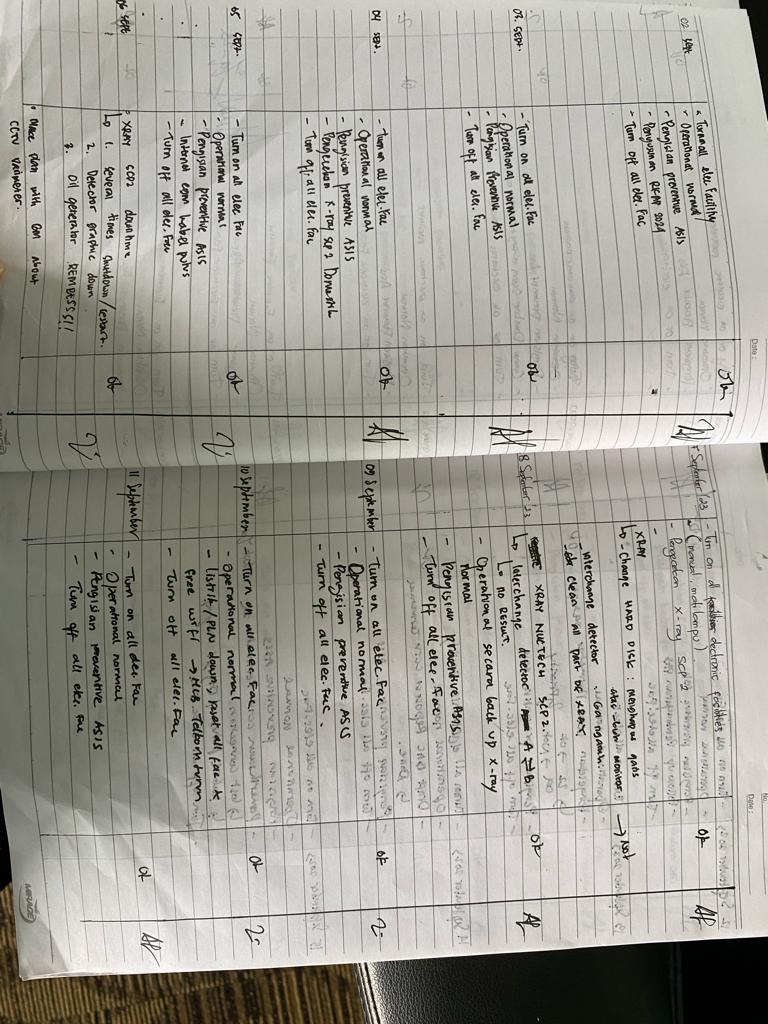 Date :
02 Sept
- Turn all elec Facility
- Operational normal
- Pengisian preventive ASIS
- Penyusunan RKAP 2024
- Turn off all elec. Fac
Ok
03. SEPT.
- Turn on all elec. Fac
- Operational normal
- Pengisian Preventive ASIS
- Turn off all elec. Fac
Ok
04 SEPT.
- Turn on all elec. Fac
- Operational normal
- Pengisian preventive ASIS
- Pengecekan X-ray SCP 2 Domestik
- Turn off all elec. Fac
Ok
05 SEPT.
- Turn on all elec Fac
- Operational normal
- Pengisian preventive ASIS
- Turn off all elec. Fac
Ok
06 SEPT
XRAY SCP2 downtime
↳ 1. several times shutdown/restart.
2. Detector graphic down
3. Oil generator REMBESS!!
Ok
• Make plan with GM about
CCTV
No:
Date :
7 September '23
- Turn on all electronic facilities
(manual, mati lampu)
- Pengecekan X-ray SCP 2
XRAY
↳ - Change HARD DISK :
monitor → Not
- Interchange detector
- clean all part of XRAY
Ok
8 September '23
XRAY NUCTECH SCP2.
↳ Interchange detector A ⇌ B
↳ no Result.
- Operational secara back up x-ray
Normal
- Pengisian preventive ASIS
- Turn off all elec. Fac
Ok
09 September
- Turn on all elec. Fac
- Operational normal
- Pengisian preventive ASIS
- Turn off all elec. Fac.
Ok
10 September
- Turn on all elec. Fac
- Operational normal
- listrik/PLN down,
free wifi →
- Turn off all elec. Fac
Ok
11 September
- Turn on all elec Fac
- Operational normal
- Pengisian preventive ASIS
- Turn off all elec. Fac
Ok
MIRAGE